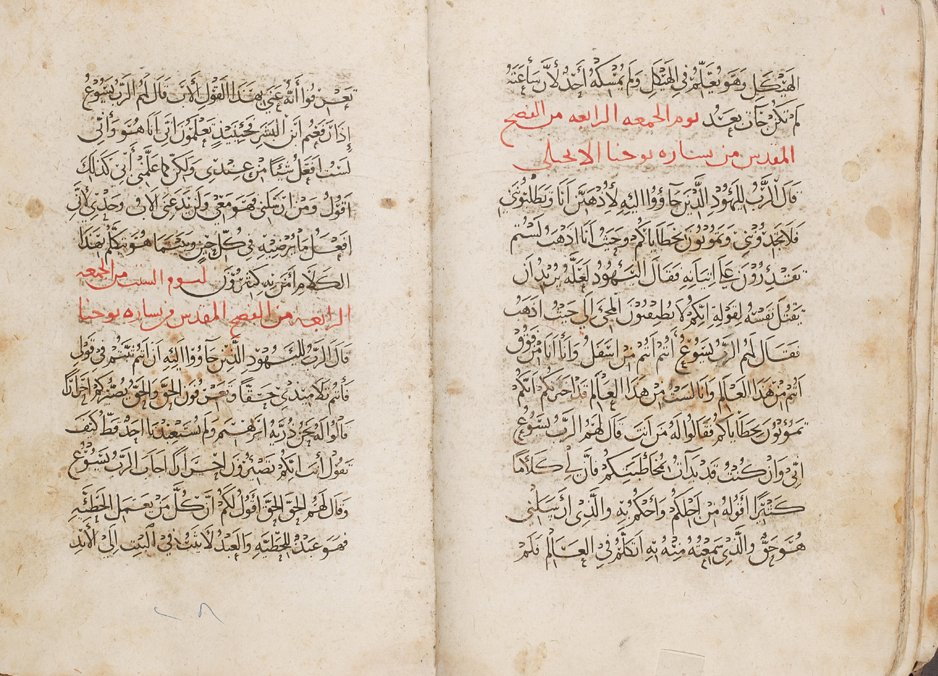 الهيكل وهو يعلم في الهيكل ولم يمسكه احد لأن ساعته
لم تكن جآت بعد يوم الجمعه الرابعه من الفصح
المقدس من بشاره يوحنا الانجيلي
قال الرب لليهود الذين جاؤوا اليه أنا وتطلبوني
فلا تجدوني وتموتون بخطاياكم وحيث أنا اذهب لستم
تقدرون على اتيانه فقال اليهود لعله يريد ان
يقتل نفسه لقوله انكم لا تطيقون المجئ الى حيث اذهب
فقال لهم الرب يسوع أنتم أنتم من اسفل وأنا أنا من فوق
انتم من هذا العالم وانا لست من هذا العالم قد اخبرتكم انكم
تموتون بخطاياكم فقالوا له من انت قال لهم الرب يسوع
اني وان كنت قد بدات مخاطبتكم فان لي كلاما
كثيرا أقوله من اجلكم واحكم به والذي ارسلني
هو حق والذي سمعته منه به اتكلم في العالم فلم
يعرفوا أنه عنى بهذا القول الاب قال لهم الرب يسوع
إذا رفعتم ابن البشر فحينيذ تعلمون اني انا هو وأني
لست افعل شيا من عندي ولكن كما علمني أبي كذلك
اقول ومن ارسلني فهو معي ولن يدعني الاب وحدي لأني
افعل ما يرضيه في كل حين وبينما هو يتكلم بهذا
الكلام امن به كثيرون ليوم السبت من الجمعه
الرابعه من الفصح المقدس من بشاره يوحنا
قال الرب لليهود الذين جاؤوا اليه ان انتم ثبتم في قولي
فأنتم تلاميذي حقا وتعرفون الحق والحق يصيركم احرارا
قالوا له نحن ذرية ابرهيم ولم يستعبدنا احد قط كيف
تقول أنت انكم تصيرون احرارا اجاب الرب يسوع
وقال لهم الحق الحق أقول لكم ان كل من يعمل الخطيه
فهو عبد للخطيه والعبد لا يثبت في البيت الى الأبد